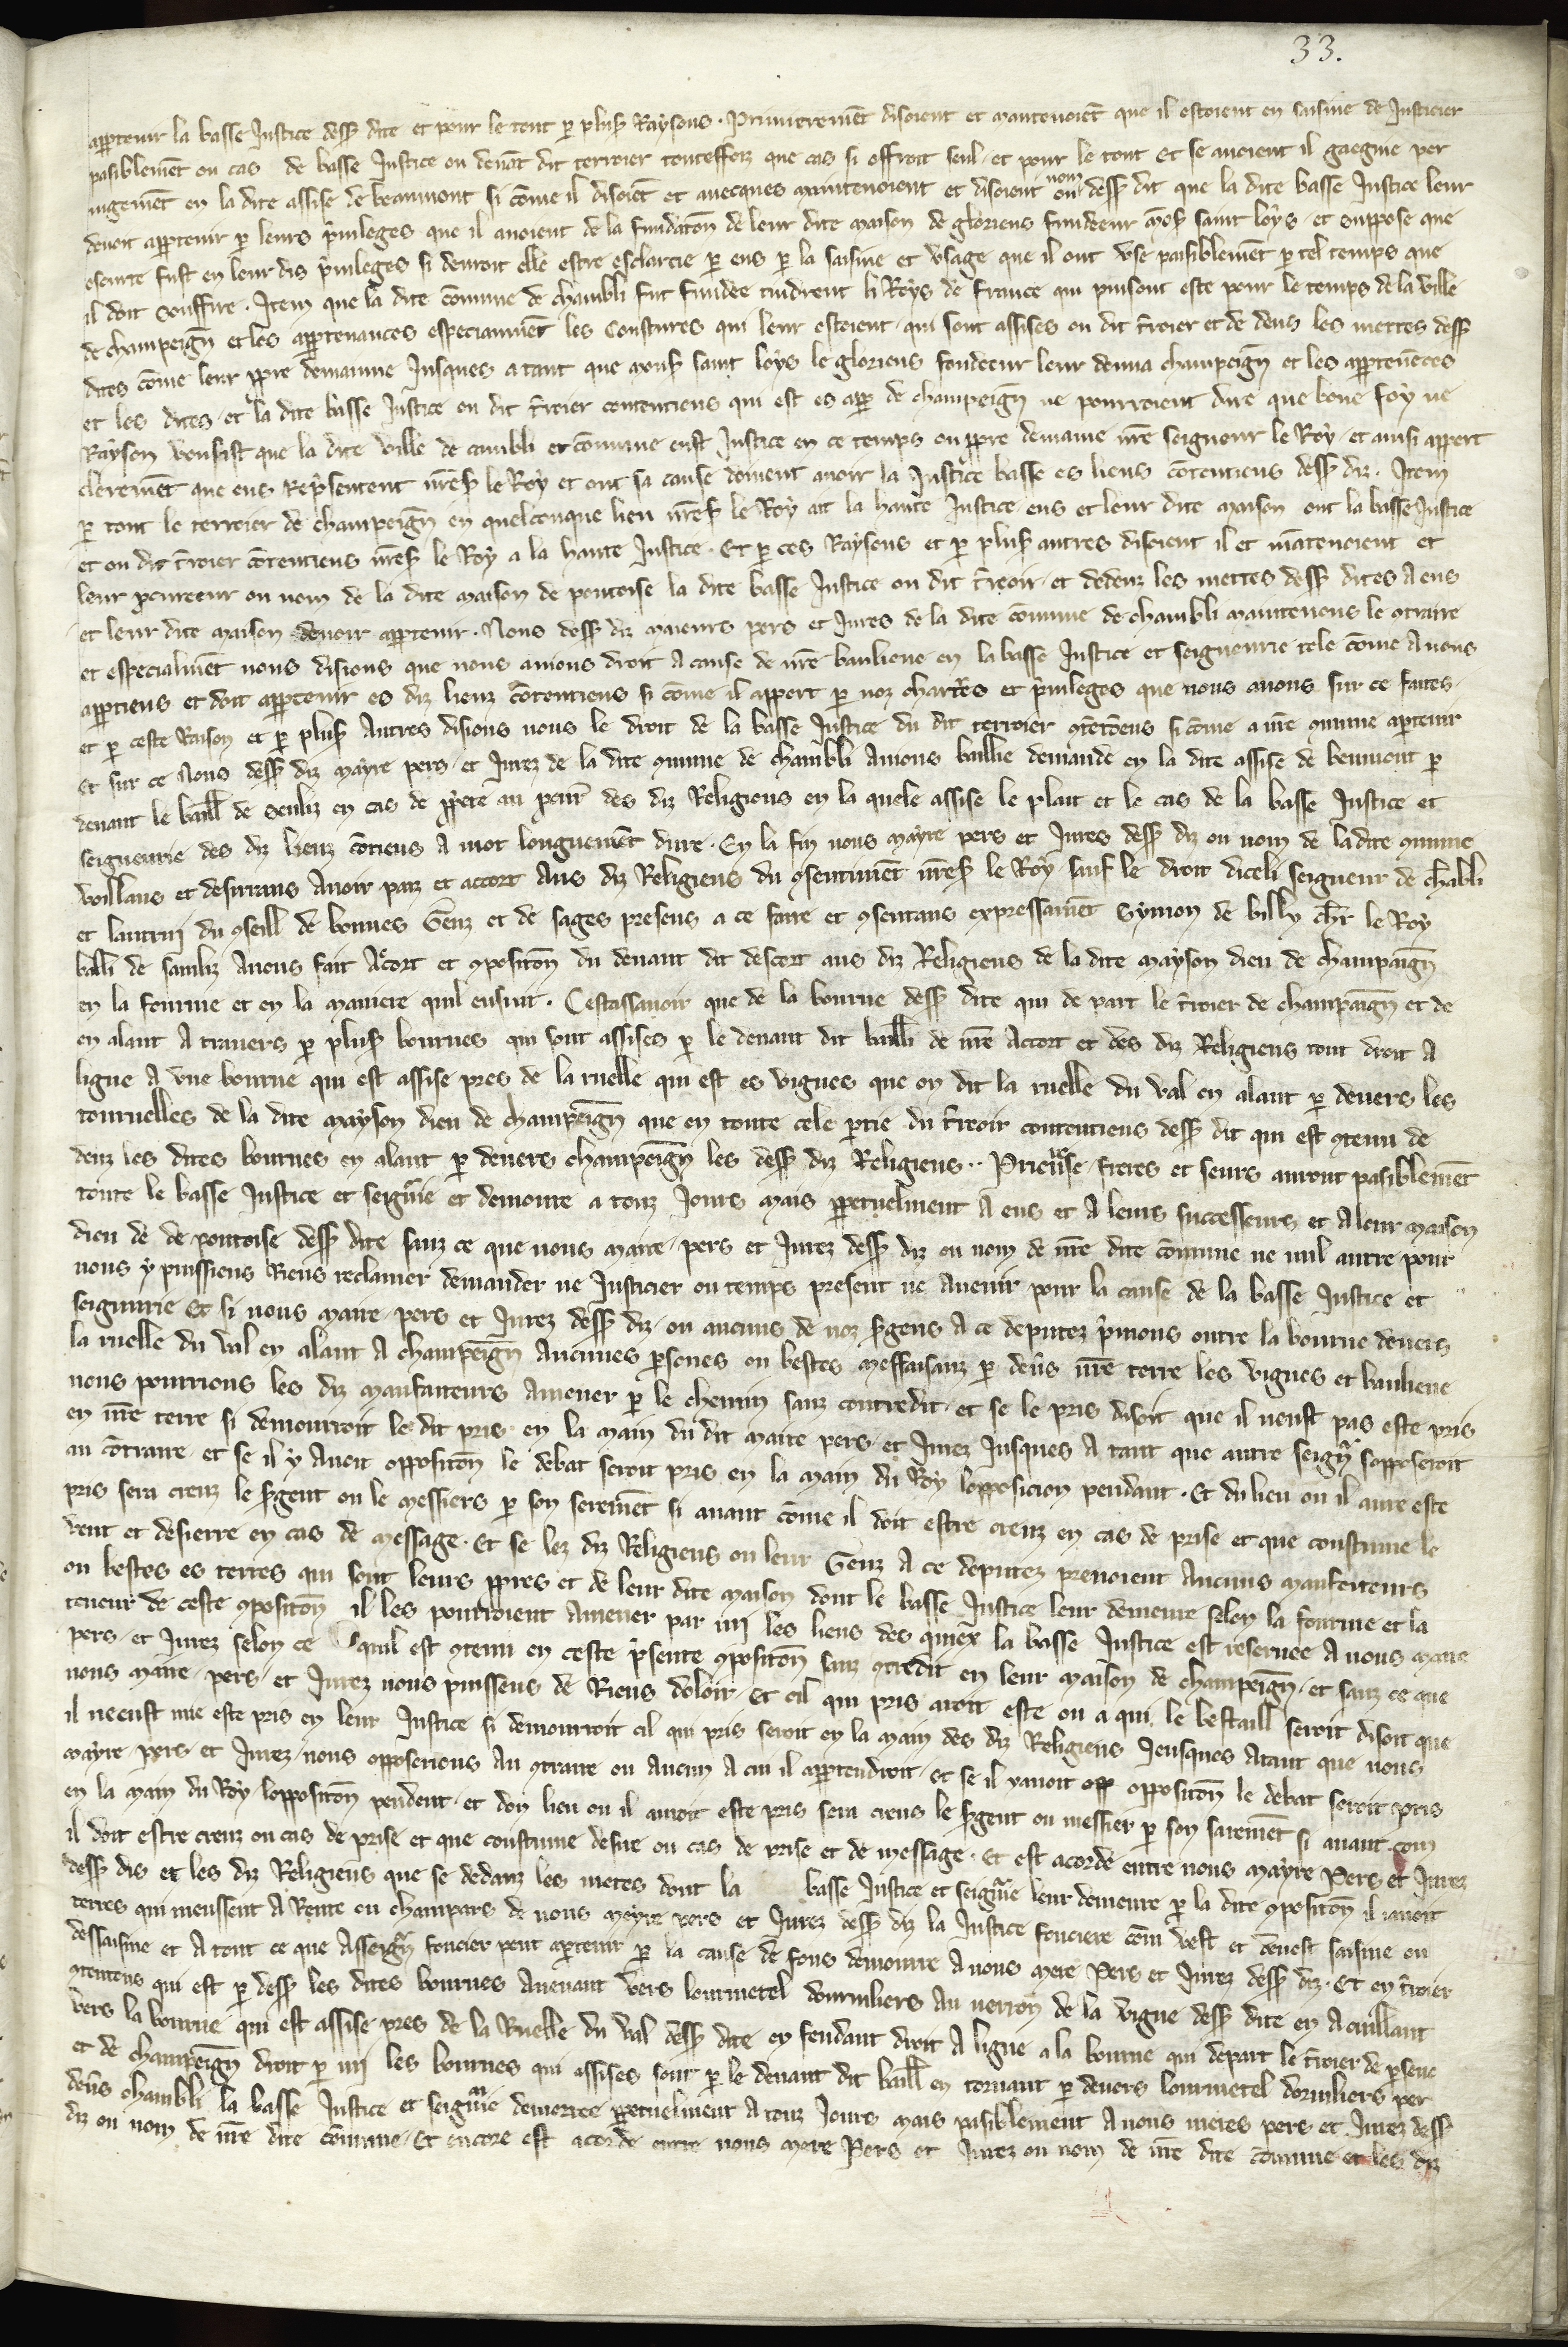 33.
appartenir la basse Justice dess dite et pour le tout p plus Raysons. Primierement disoient et mantenoiēt que il estoient en saisine de Justicier
pasiblemēt ou cas de basse Justice ou deuāt dit terroier toutesfoiz que cas si offroit seul et pour le tout Et se auoient il gaegne per
iugemēt en la dite assise de beaumont si cōme il disoiēt et auecques maintenoient et disoient ou nom dess dit que la dite basse Justice leur
deuoit appartenir p leurs puileges que il auoient de la fundatōn de leur dite maison de glorieus fundeeur mōs saint loys et suppose que
oscurte fust en leur dis puileges si deuroit elle estre esclarcie p eus p la saisine et vsage que il ont vse paisiblemēt p tel temps que
il doit souffire. Item que la dite cōmune de chambli fut fundee tindrent li Roys de france qui puisont este pour le temps de la ville
de champeign et les appartenances especiaumēt les Coustures qui leur estoient qui sont assises ou dit troier et de dens les mettes dess
dites cōme leur ppre demainne Jusques a tant que mons saint loys le glorieus fondeeur leur donna champeign et les appartenēces
et les dites et la dite basse Justice ou dit troier contentieus qui est es app de champeign ne pourroient dire que bone foy ne
Rayson vousist que la dite ville de cambli et cōmune eust Justice en ce temps ou ppre demaine nre seigneur le Roy et ainsi appert
cleremēt que eus rep̄sentent nres le Roy et ont sa cause doiuent auoir la Justice basse es liens cōtentieus dess diz. Item
p tout le terroier de champeign en quelconque lieu nres le Roy ait la haute Justice eus et leur dite maison ont la basse Justice
et ou dit troier cōtentieus nres le Roy a la haute Justice. Et p ces Raysons et p plus autres disoient il et mātenoient et
leur pcureeur ou nom de la dite maison de pontoise la dite basse Justice ou dit treoir et dedenz les mettes dess dites A eus
et leur dite maison deuoir appartenir. Nous dess diz maieurs pers et Jures de la dite cōmune de chambli maintenons le cōtraire
et especialmēt nous disions que nous auions droit A cause de nre banlieue en la basse Justice et seigneurie tele cōme A nous
appartiens et doit appartenir es diz lieuz cōtentieus si cōme il appert p noz chartres et puileges que nous auons sur ce faites.
et p ceste Raison et p plus Autres disions nous le droit de la basse Justice du dit terroier cōtetieus si cōme a nre cōmune aptenir
Et sur ce Nous dess diz mayre pers et Jurez de la dite cōmune de chambli Auions baillie demande en la dite assise de beumont p
deuant le baill de senliz en cas de ppete au pcur des diz Religieus en la quele assise le plait et le cas de la basse Justice et
seigneurie des diz lieuz cōtieus A mot longuemēt dure. En la fin nous mayre pers et Jures dess diz ou nom de la dite cōmune
voillans et desirrans Auoir paiz et accort Aus diz Religieus du cōsentimēt nres le Roy sauf le droit diceli seigneur de chābli
et lautrui du cōseill de bonnes Genz et de sages presens a ce faire et cōsentans expressamēt Symon de billy chr le Roy
balli de sanliz Auons fait Acort et cōpositōn du deuant dit descort aus diz Religieus de la dite mayson dieu de champaign
en la fourme et en la maniere quil ensuit. Cestassauoir que de la bourne dess dite qui de part le troier de champaign et de
en alant A trauers p plus bournes qui sont assises p le deuant dit bailli de nre Accort et des diz Religieus tout droit A
ligue A vne bourne qui est assise pres de la ruelle qui est es vignes que on dit la ruelle du val en alant p deuers les
tournelles de la dite mayson dieu de champeign que en toute cele ptie du treoir contentieus dess dit qui est cōtenu de
denz les dites bournes en alant p deuers champeign les dess diz Religieus.. Prieuse freres et seurs auront pasiblemēt
toute le basse Justice et seigrie et demoure a touz Jours mais ppetuelment A eus et A leurs successeurs et A leur maison
dieu de de pontoise dess dite sanz ce que nous maire pers et Jurez dess diz ou nom de nre dite cōmune ne nul autre pour
nous y puissiens Riens reclamer demander ne Justicier ou temps present ne Auenir pour la cause de la basse Justice et
seigniurie Et si nous maire pers et Jurez dess diz ou aucuns de noz sgens A ce deputez pmons outre la bourne deuers
la ruelle du val en alant A champeign Aucunes psones ou bestes meffaisanz p deūs nre terre les vignes et banlieue
nous pourrions les diz maufaiteurs Amener p le chemin sanz contredit et se le pris disoit que il neust pas este pris
en nre terre si demourroit le dit pris en la main du dit maire pers et Jurez Jusques A tant que autre seigr sopposeroit
au cōtraire et se il y Auoit oppositōn le debat seroit pris en la main du Roy lopposicion pendant. Et du lieu ou il aura este
pris sera creuz le sgent ou le messiers p son seremēt si auant cōme il doit estre creuz en cas de prise et que coustume le
veut et desierre en cas de message. Et se lez diz Religieus ou leur Genz A ce deputez prenoient Aucuns maufeiteurs
ou bestes es terres qui sont leurs ppres et de leur dite maison dont le basse Justice leur demeure selon la fourme et la
teneur de ceste cōpositōn il les pourroient Amener par mi les lieus des quiex la basse Justice est reseruee A nous maire
pers et Jurez selon ce quil est cōtenu en ceste psente cōpositōn sanz cōtredit en leur maison de champeign et sanz ce que
nous maire pers et Jurez nous puissens de Riens doloir Et cil qui pris auoit este ou a qui le bestaill seroit disoit que
il neeust mie este pris en leur Justice si demourroit cil qui pris seroit en la main des diz Religieus Jeusques Atant que nous
mayre pers et Jurez nous opposerions Au cōtraire ou Aucun A cui il appartendroit et se il yauoit opp oppositōn le debat seroit pris
en la main du Roy loppositōn pendent et don lieu ou il auroit este pris sera creus le sgent ou messier p son saremēt si auant com
il doit estre creuz ou cas de prise et que coustume desue ou cas de prise et de message. Et est acorde entre nous mayre Pers et Jurez
dess dis et les diz Religieus que se dedanz les metes dont la basse Justice et seigrie leur demeure p la dite cōpositōn il auoit
terres qui meussent A Rente ou champars de nous meyre pers et Jurez dess diz la Justice fonciere com vest et deuest saisine ou
dessaisine et A tout ce que Asseigr foncier peut aptenir p la cause de fons demoure A nous mere Pers et Jurez dess diz. Et en troier
cōtentens qui est p dess les dites bournes Auenant vers lourmetel dourniliers Au uerron de la vigne dess dite en Acuillant
vers la bourne qui est assise pres de la Ruelle du val dess dite en fendant droit A ligue a la bourne qui depart le troier de psene
et de champeign droit p mi les bournes qui assises sont p le deuant dit baill en tornant p deuers lourmetel dorniliers per
deūs chambli la basse Justice et seigrie demorree ppetuelment A touz Jours mais pasiblement A nous meres pers et Jurez dess
diz ou nom de nre dite cōmune. Et encore est acorde entre nous mere Pers et Jurez ou nom de nre dite cōmune et les diz